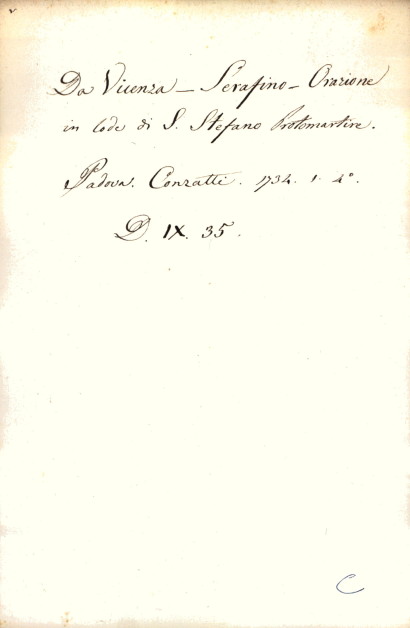 Da Vicenza – Serafino – Orazione
in lode di S. Stefano Protomartire.
Padova. Conzatti. 1734. 1. 4°.
D. IX. 35.
C